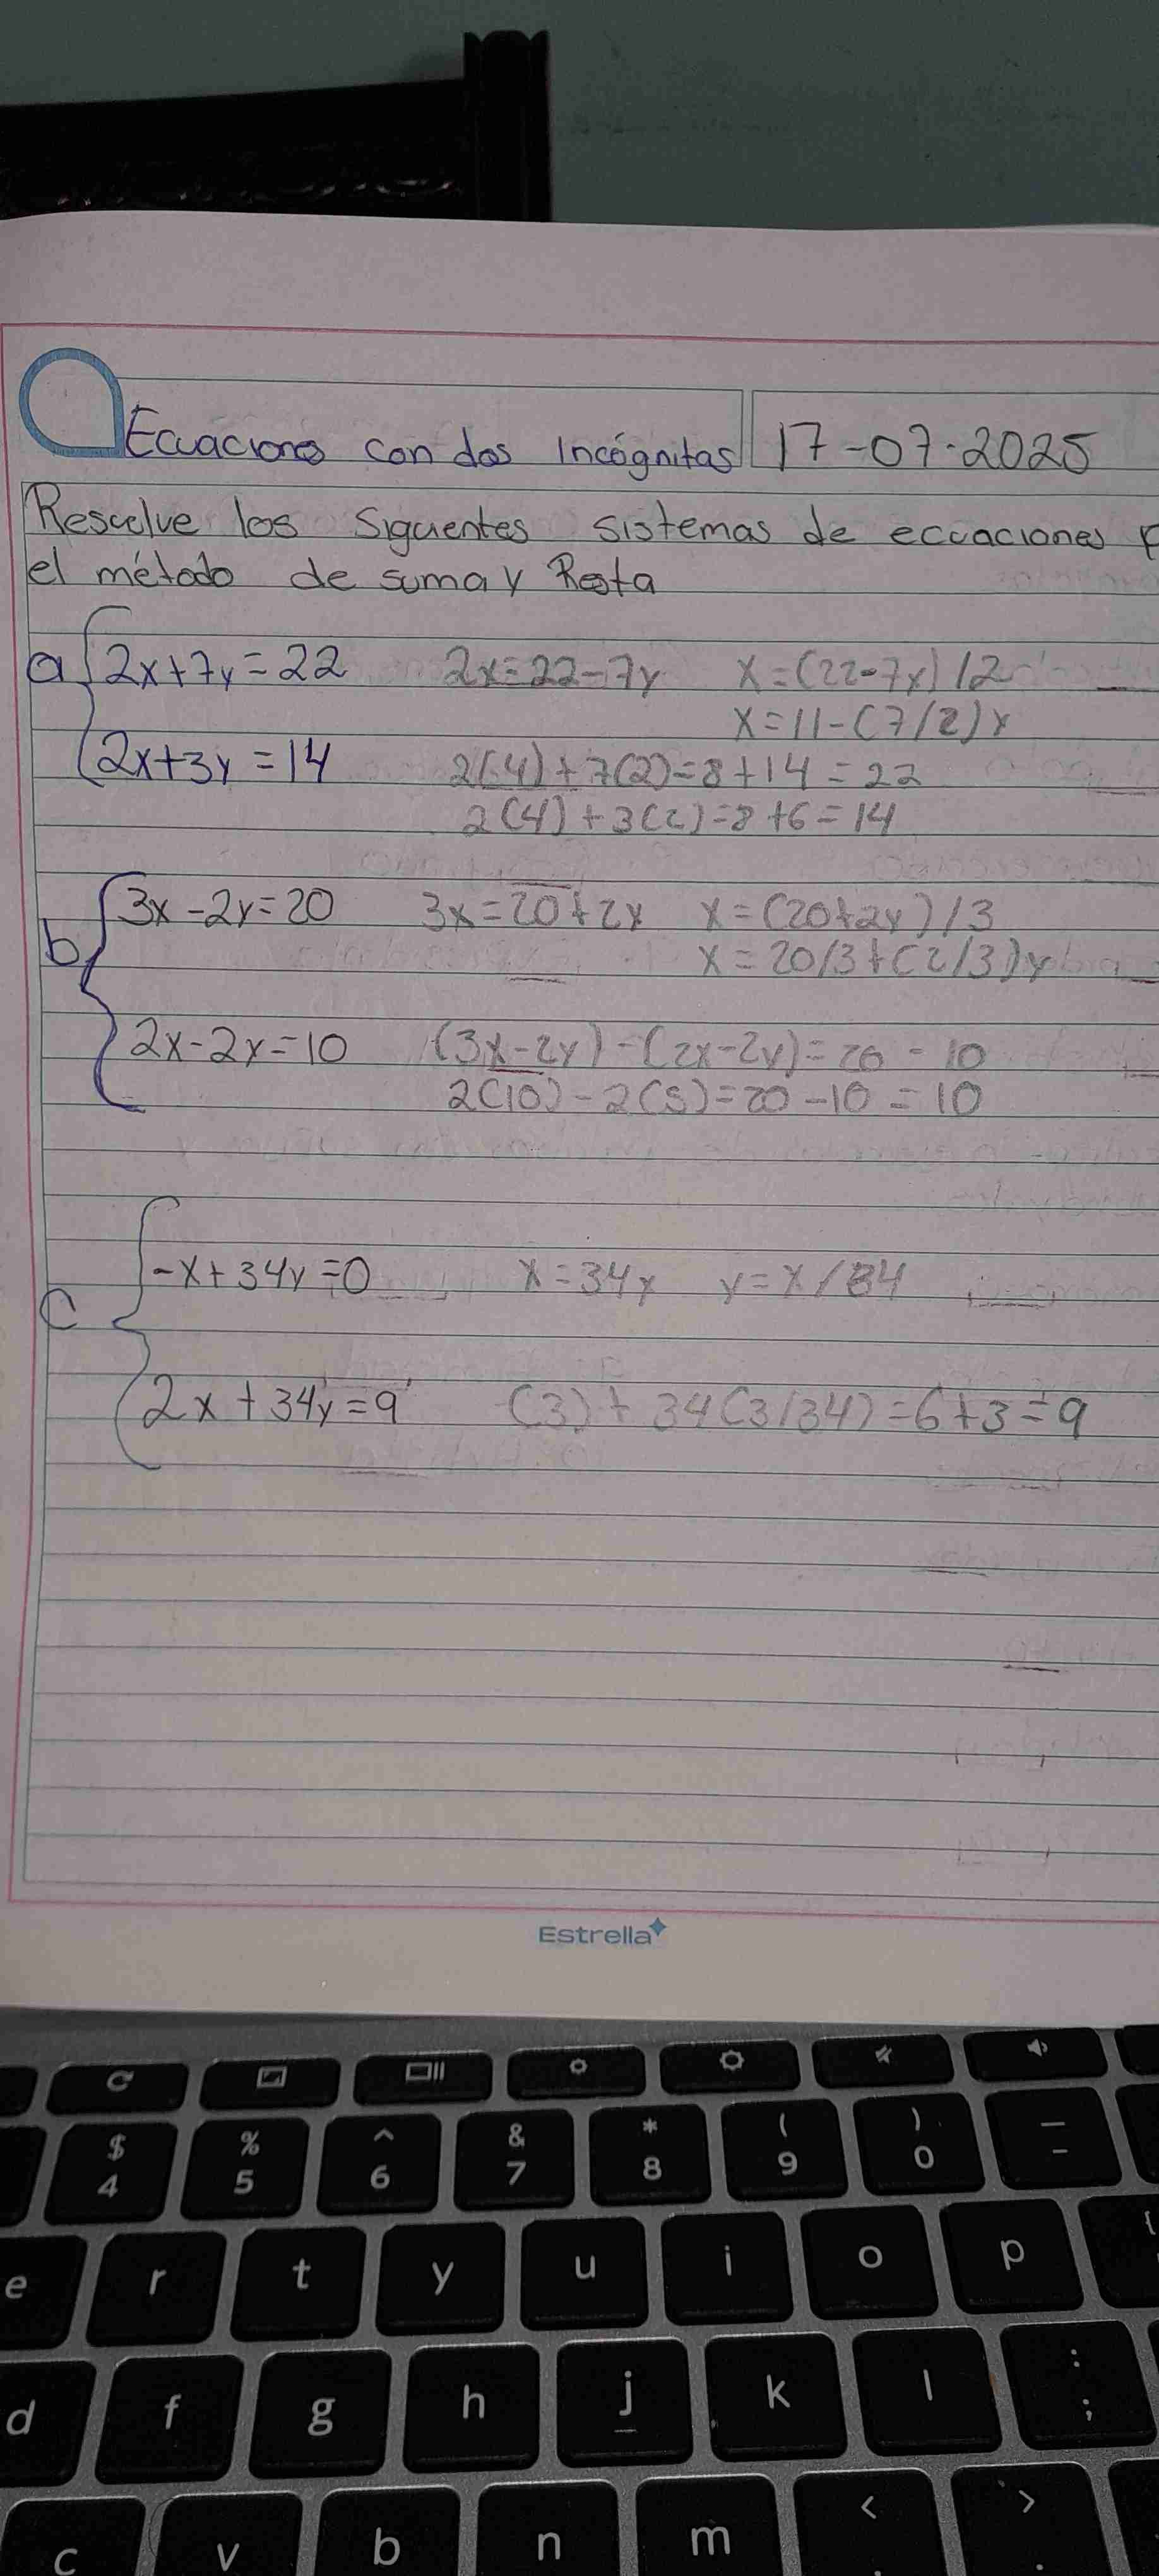 Ecuaciones con dos Incógnitas 17-07-2025
Resuelve los Siguentes sistemas de ecuaciones
el método de suma y Resta
a 2x+7y=22 2x=22-7y x=(22-7y)/2
x=11-(7/2)y
2x+3y=14 2(4)+7(2)=8+14=22
2(4)+3(2)=8+6=14
b 3x-2y=20 3x=20+2y x=(20+2y)/3
x=20/3+(2/3)y
2x-2y=10 (3x-2y)-(2x-2y)=20-10
2(10)-2(5)=20-10=10
c -x+34y=0 x=34y y=x/34
2x+34y=9 (3)+34(3/34)=6+3=9
Estrella
$ % ^ & * ( ) —
4 5 6 7 8 9 0 -
{
e r t y u i o p
:
d f g h j k l ;
< >
c v b n m , .